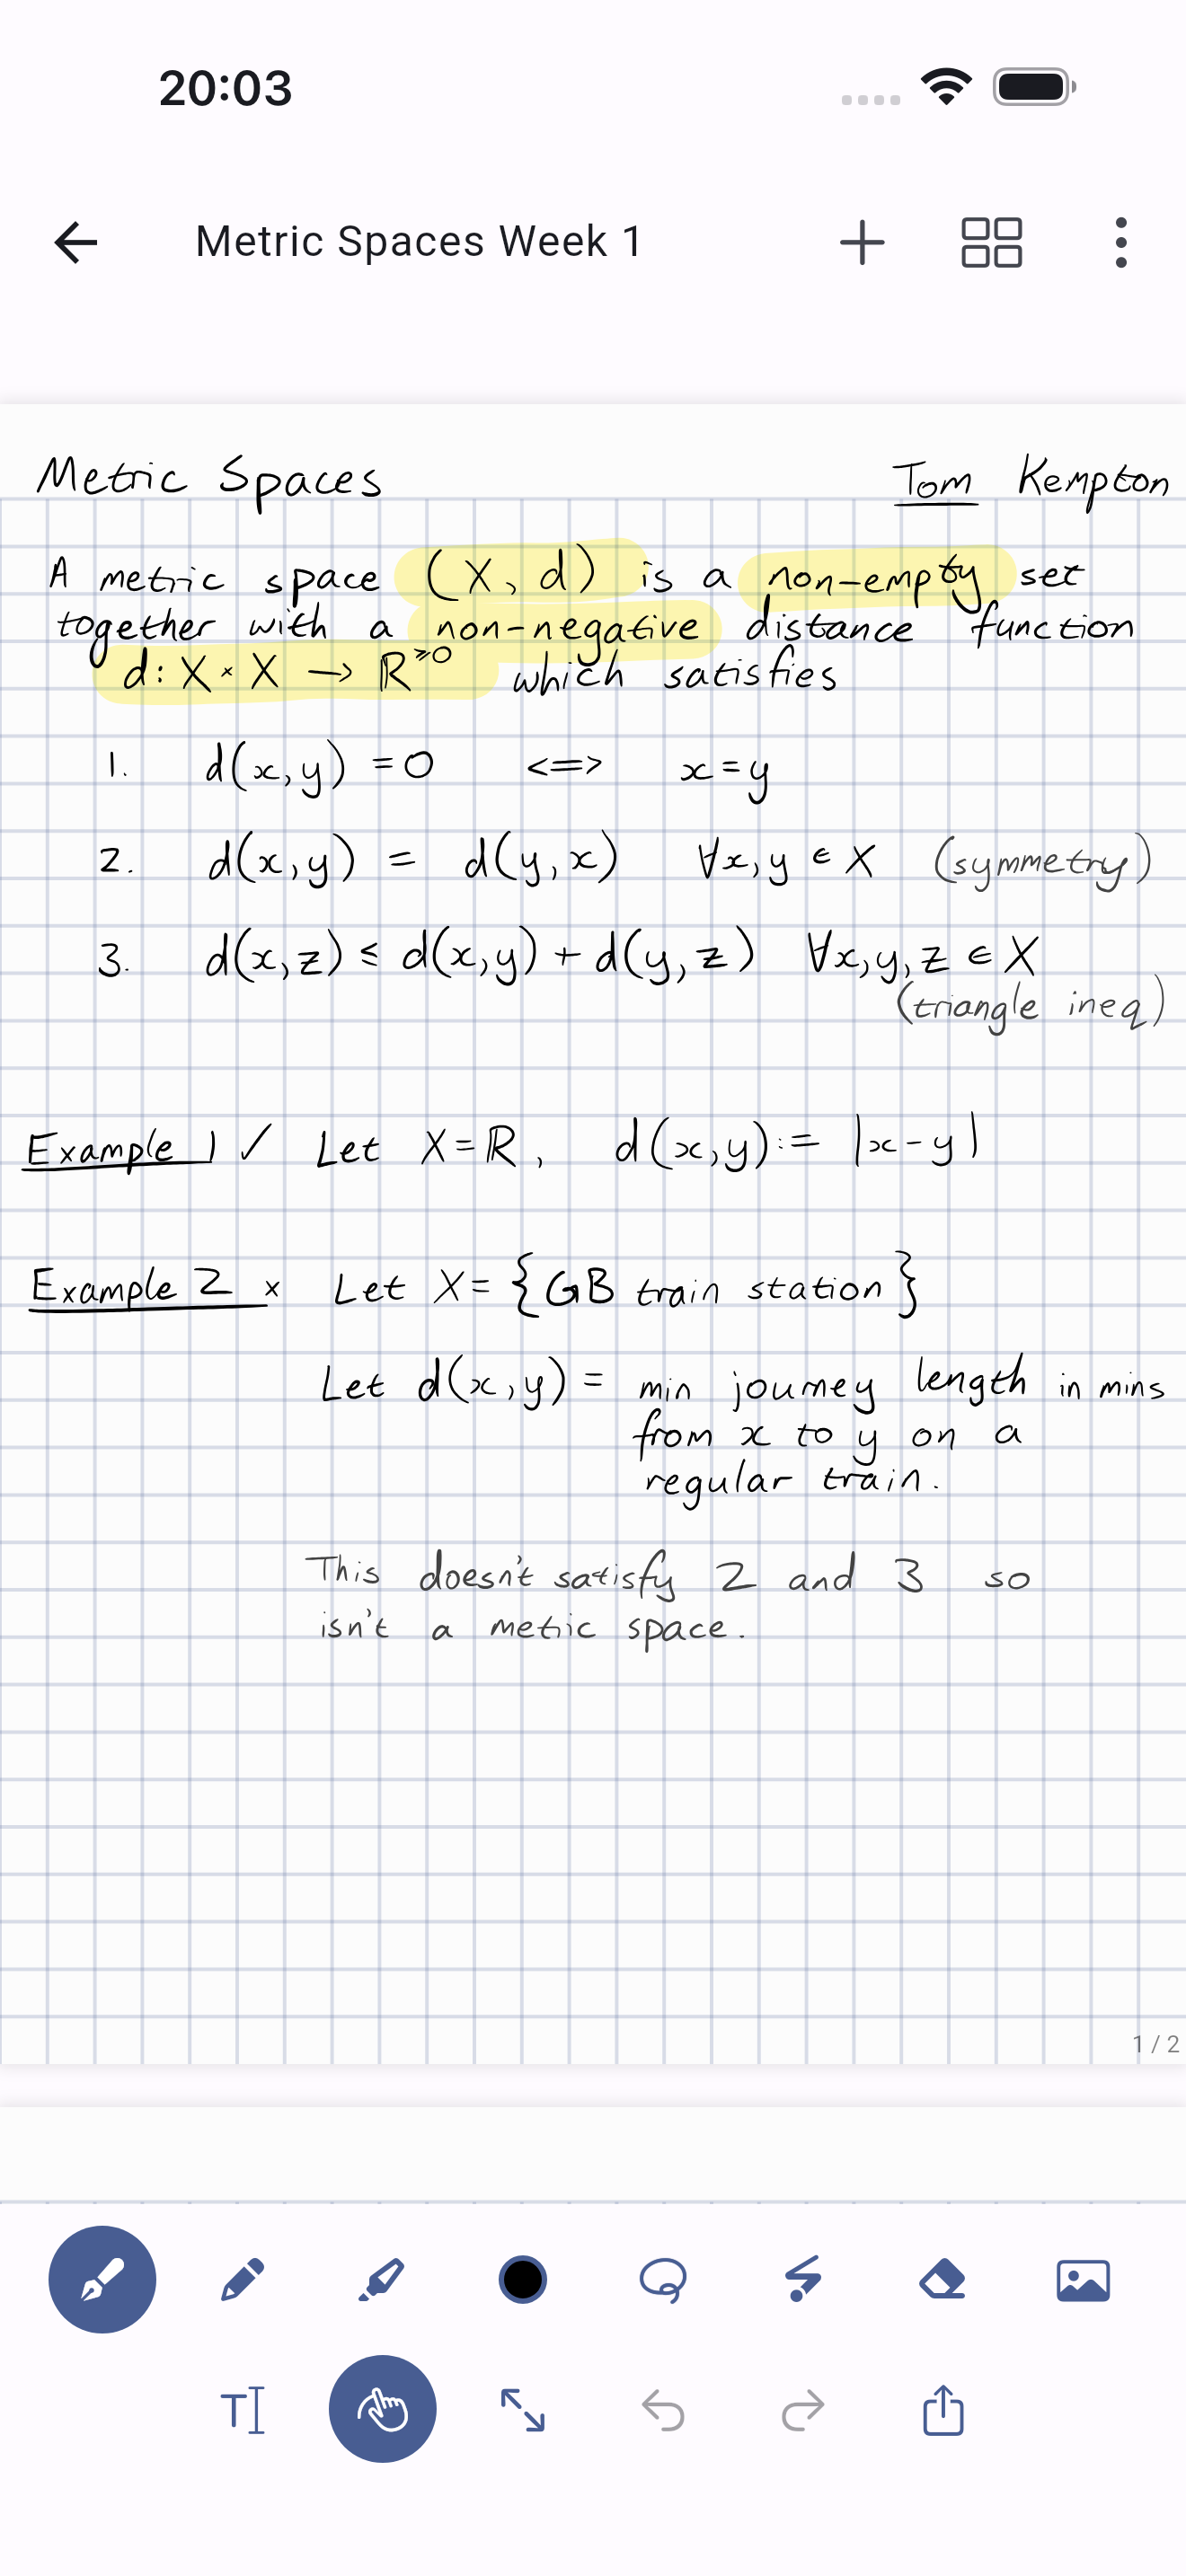 20:03
Metric Spaces Week 1
Metric Spaces Tom Kempton
A metric space (X, d) is a non-empty set
together with a non-negative distance function
d: X × X → ℝ^≥0 which satisfies
1. d(x,y) = 0 <=> x = y
2. d(x,y) = d(y,x) ∀x,y ∈ X (symmetry)
3. d(x,z) ≤ d(x,y) + d(y,z) ∀x,y,z ∈ X
(triangle ineq)
Example 1 ✓ Let X = ℝ, d(x,y) := |x-y|
Example 2 × Let X = {GB train station}
Let d(x,y) = min journey length in mins
from x to y on a
regular train.
This doesn't satisfy 2 and 3 so
isn't a metric space.
1 / 2